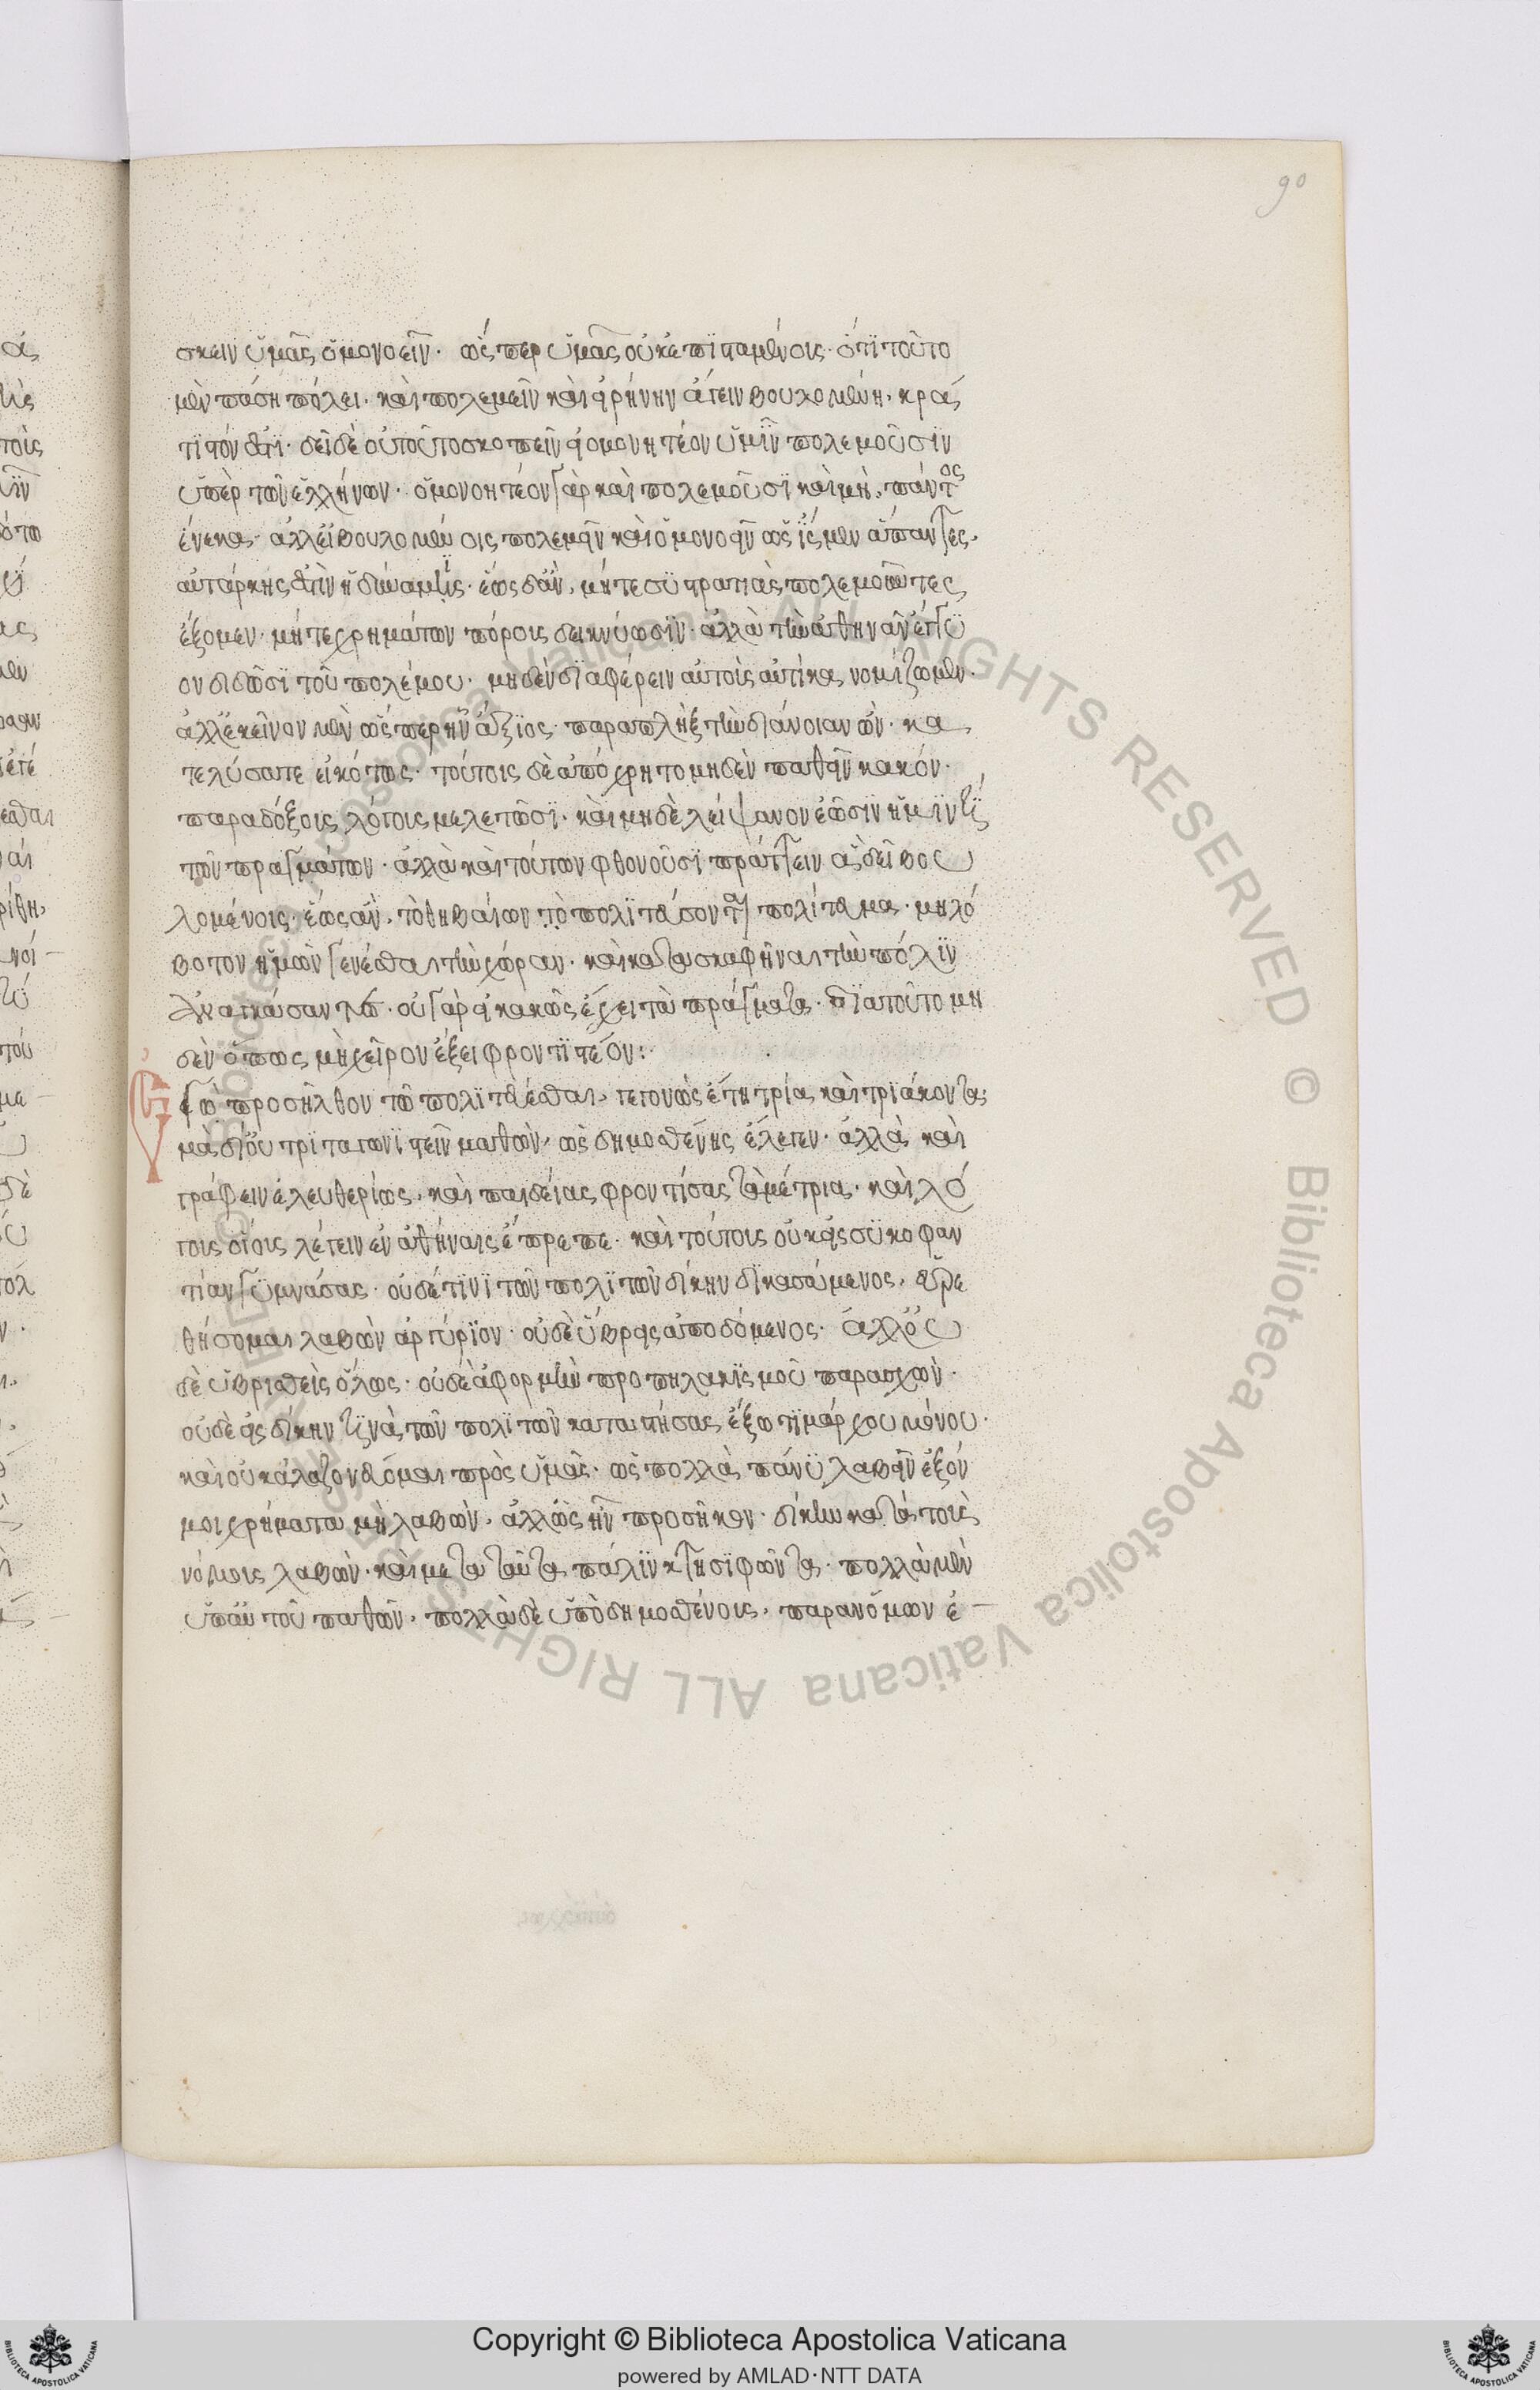 90
σκειν ὑμᾶς ὁμονοεῖν· ὥσπερ ὑμᾶς οὐκ ἐπισταμένοις· ὅτι τοῦτο
μὲν πάσῃ πόλει· καὶ πολεμεῖν καὶ εἰρήνην ἄγειν βουλομένη, κρά
τιστόν ἐστι· δεῖ δὲ οὐ τοῦτο σκοπεῖν εἰ ὁμονητέον ὑμῖν πολεμοῦσιν
ὑπὲρ τῶν ἑλλήνων· ὁμονοητέον γὰρ καὶ πολεμοῦσι καὶ μὴ, παντὸς
ἕνεκα· ἀλλ' εἰ βουλομένοις πολεμεῖν καὶ ὁμονοεῖν ὡς ἴσμεν ἅπαντες,
αὐτάρκης ἐστὶν ἡ δύναμις· ἕως δ' ἂν, μήτε στρατιὰς πολεμοῦντες
ἕξομεν· μήτε χρημάτων πόρους δεικνύωσιν· ἀλλὰ τὴν ἀθηνᾶν ἔγγυ
ον διδῶσι τοῦ πολέμου· μηδὲν διαφέρειν αὐτοῖς αὐτίκα νομίζωμεν·
ἀλλ' ἐκεῖνον μὲν ὥσπερ ἦν ἄξιος· παραπλὴξ τὴν διάνοιαν ὢν· κα
τελύσατε εἰκότως· τούτοις δὲ ἀπόχρη τὸ μηδὲν παθεῖν κακόν·
παραδόξοις λόγοις μελετῶσι· καὶ μηδὲ λείψανον ἐῶσιν ἡμῖν τι
τῶν πραγμάτων· ἀλλὰ καὶ τούτων φθονοῦσι πράττειν ἃ δεῖ βου
λομένοις· ἕως ἂν, τὸ θηβαίων πολίτευμα· μηλό
βοτον ἡμῶν γενέσθαι τὴν χώραν· καὶ κατασκαφῆναι τὴν πόλιν
ἀναγκάσαντ οὐ γὰρ εἰ κακῶς ἔχει τὰ πράγματα· διὰ τοῦτο μη
δὲν ὅπως μὴ χεῖρον ἕξει φροντιστέον:
Ἐγὼ προσῆλθον τῷ πολιτεύεσθαι, γεγονὼς ἔτη τρία καὶ τριάκοντα·
μὰ δί' οὐ τριταγωνιστεῖν μαθὼν, ὡς δημοσθένης ἔλεγεν· ἀλλὰ καὶ
τράφειν ἐλευθερίως, καὶ παιδείας φροντίσας τὰ μέτρια· καὶ λό
γοις οἵοις λέγειν ἐν ἀθήναις ἔπρεπε· καὶ τούτοις οὐκ εἰς συκοφαν
τίαν γυμνάσας· οὐδέ τινι τῶν πολιτῶν δίκην δικασάμενος, εὑρε
θήσομαι λαβὼν ἀργύριον· οὐδὲ ὕβρεις ἀποδόμενος· ἀλλ' οὐ
δὲ ὑβρισθεὶς ὅλως· οὐδὲ ἀφορμὴν προπηλακισμοῦ παρασχών·
οὐδὲ εἰς δίκην τινὰ τῶν πολιτῶν καταστήσας ἔξω τιμάρχου μόνου·
καὶ οὐκ ἀλαζονεύομαι πρὸς ὑμᾶς· ὡς πολλὰ πάνυ λαβεῖν ἐξόν
μοι χρήματα μὴ λαβών· ἀλλ' ὡς ἦν προσῆκον· δίκην κατὰ τοὺς
νόμους λαβών· καὶ μετὰ ταῦτα πάλιν κτησιφῶντα· πολλὰ μὲν
ὑπ' αὐτοῦ παθών, πολλὰ δὲ ὑπὸ δημοσθένους, παρανόμων ἐ
Copyright © Biblioteca Apostolica Vaticana
powered by AMLAD·NTT DATA